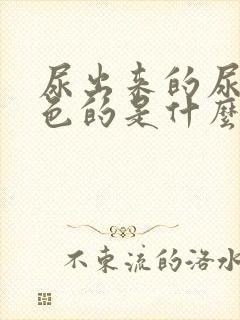 尿出来的尿
色的是什麼
不束流的洛水